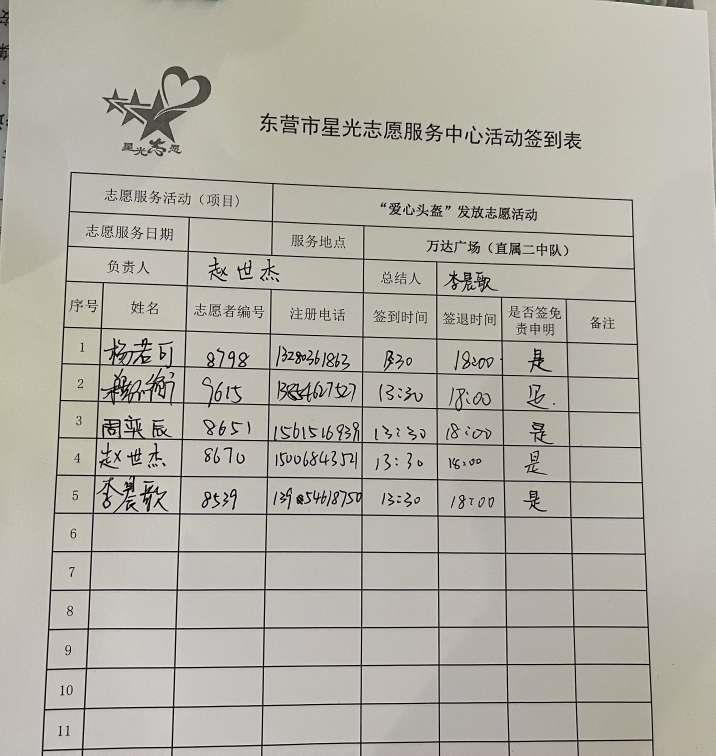 星光志愿
东营市星光志愿服务中心活动签到表
志愿服务活动（项目） “爱心头盔”发放志愿活动
志愿服务日期 服务地点 万达广场（直属二中队）
负责人 赵世杰 总结人 李晨歌
序号 姓名 志愿者编号 注册电话 签到时间 签退时间 是否签免责申明 备注
1 杨若可 8798 13280361863 13:30 18:00 是
2 9615 13:30 18:00 是
3 周奕辰 8651 1561516939 13:30 18:00 是
4 赵世杰 8670 15006843521 13:30 18:00 是
5 李晨歌 8539 139 54618750 13:30 18:00 是
6
7
8
9
10
11